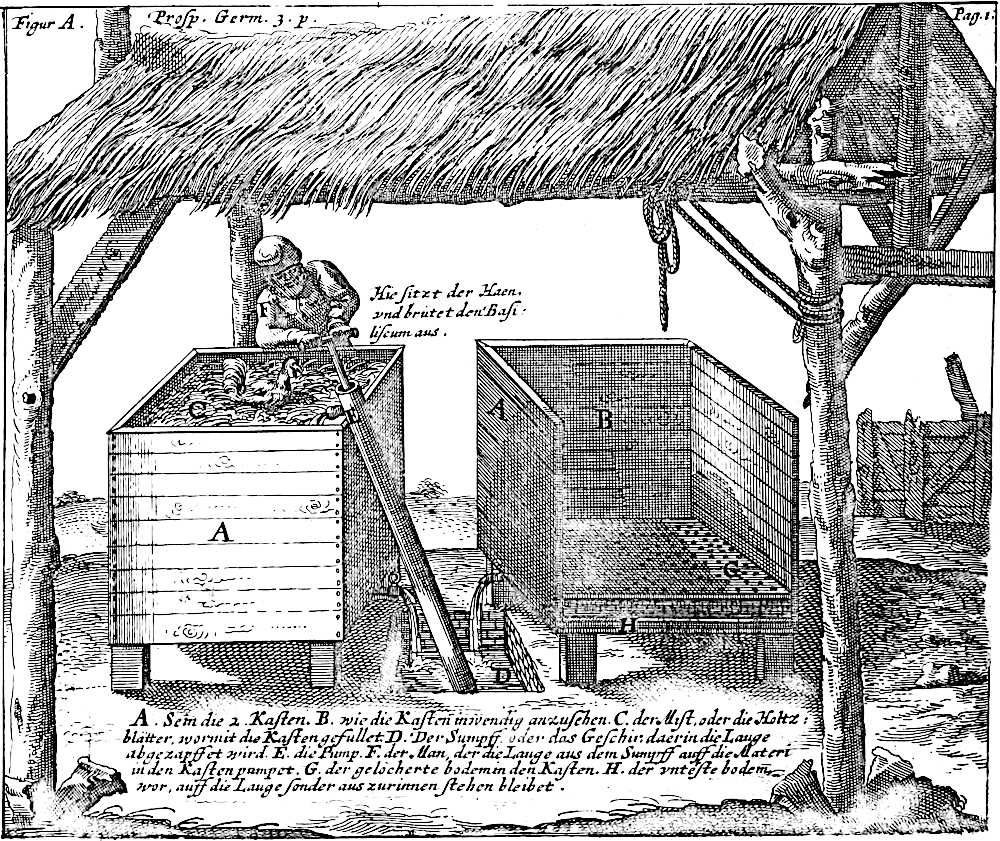 Figur A.
Prosp. Germ. 3. p.
Pag. 1.
Hie sitzt der Haen.
vnd brütet den Basi:
liscum aus.
F
C
E
A
A
B
G
H
D
A. Sein die 2. Kasten. B. wie die Kasten inwendig anzusehen. C. der Mist, oder die Holtz:
blätter, wormit die Kasten gefüllet. D. Der Sumpff, oder das Geschir, daerin die Lauge
abgezapffet wird. E. die Pump. F. der Man, der die Lauge aus dem Sumpff auff die Materi
in den Kasten pumpet. G. der gelöcherte bodem in den Kasten. H. der vnteste bodem,
wor, auff die Lauge sonder aus zurinnen stehen bleibet.